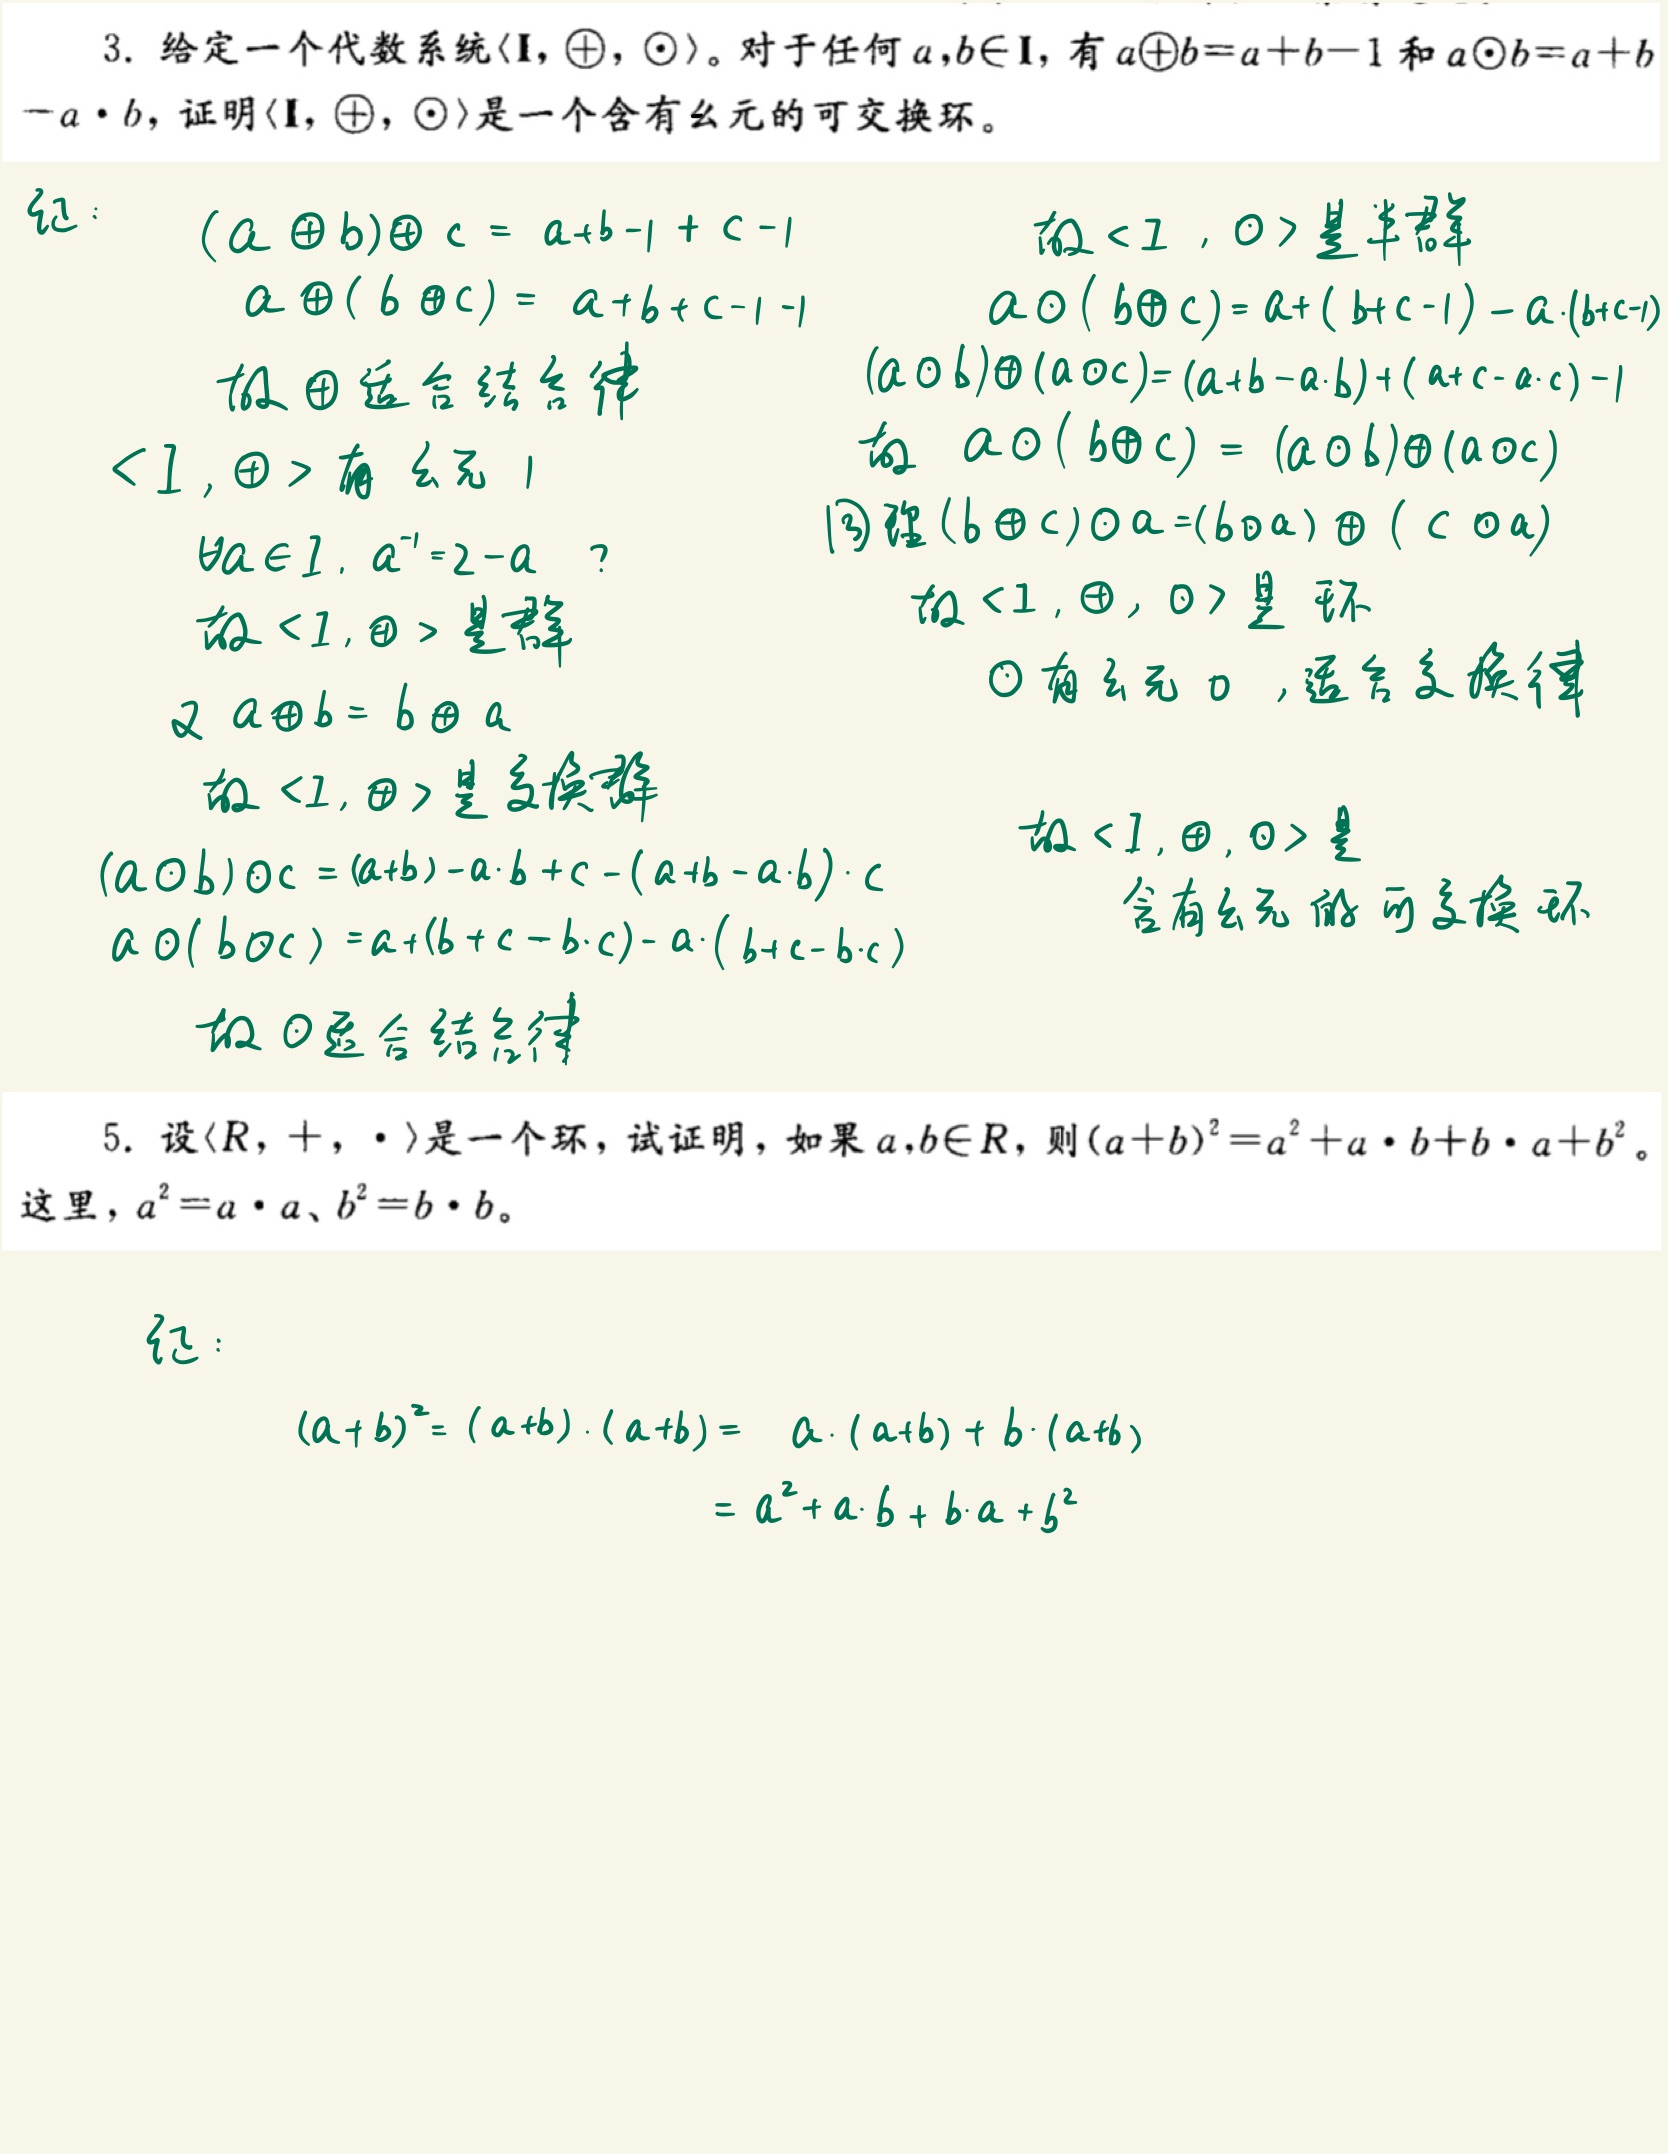 3. 给定一个代数系统〈I, ⊕, ⊙〉。对于任何 a,b∈I, 有 a⊕b=a+b−1 和 a⊙b=a+b
−a·b, 证明〈I, ⊕, ⊙〉是一个含有幺元的可交换环。
证:
(a⊕b)⊕c = a+b-1+c-1
a⊕(b⊕c) = a+b+c-1-1
故⊕适合结合律
<I,⊕>有幺元 1
∀a∈I, a⁻¹=2-a ?
故<I,⊕>是群
又 a⊕b = b⊕a
故<I,⊕>是交换群
(a⊙b)⊙c = (a+b)-a·b+c-(a+b-a·b)·c
a⊙(b⊙c) = a+(b+c-b·c)-a·(b+c-b·c)
故⊙适合结合律
故<I,⊙>是半群
a⊙(b⊕c) = a+(b+c-1)-a·(b+c-1)
(a⊙b)⊕(a⊙c) = (a+b-a·b)+(a+c-a·c)-1
故 a⊙(b⊕c) = (a⊙b)⊕(a⊙c)
同理(b⊕c)⊙a=(b⊙a)⊕(c⊙a)
故<I,⊕,⊙>是环
⊙有幺元0,适合交换律
故<I,⊕,⊙>是
含有幺元的可交换环
5. 设〈R, +, ·〉是一个环, 试证明, 如果 a,b∈R, 则(a+b)²=a²+a·b+b·a+b²。
这里, a²=a·a、b²=b·b。
证:
(a+b)² = (a+b)·(a+b) = a·(a+b)+b·(a+b)
= a²+a·b+b·a+b²